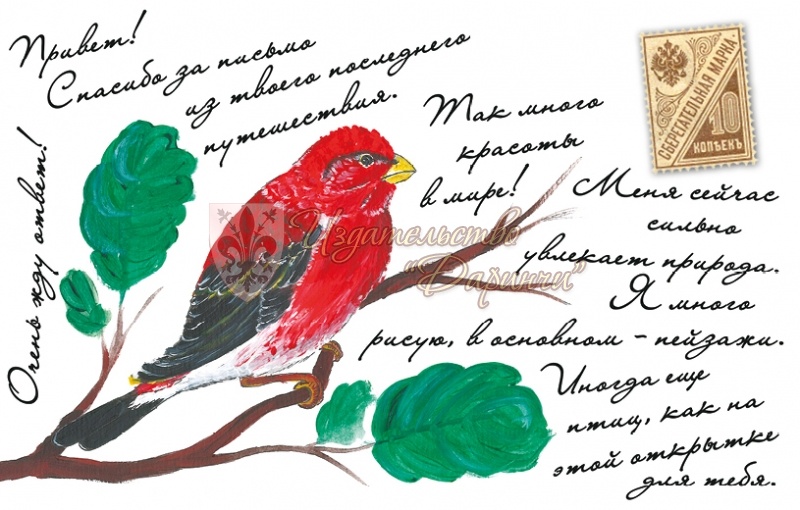 Привет!
Спасибо за письмо
из твоего последнего
путешествия.
Так много
красоты
в мире!
Меня сейчас
сильно
увлекает природа.
Я много
рисую, в основном - пейзажи.
Иногда еще
птиц, как на
этой открытке
для тебя.
Очень жду ответ!
СБЕРЕГАТЕЛЬНАЯ МАРКА
10
КОПѢЕКЪ
Издательство
"Даринчи"